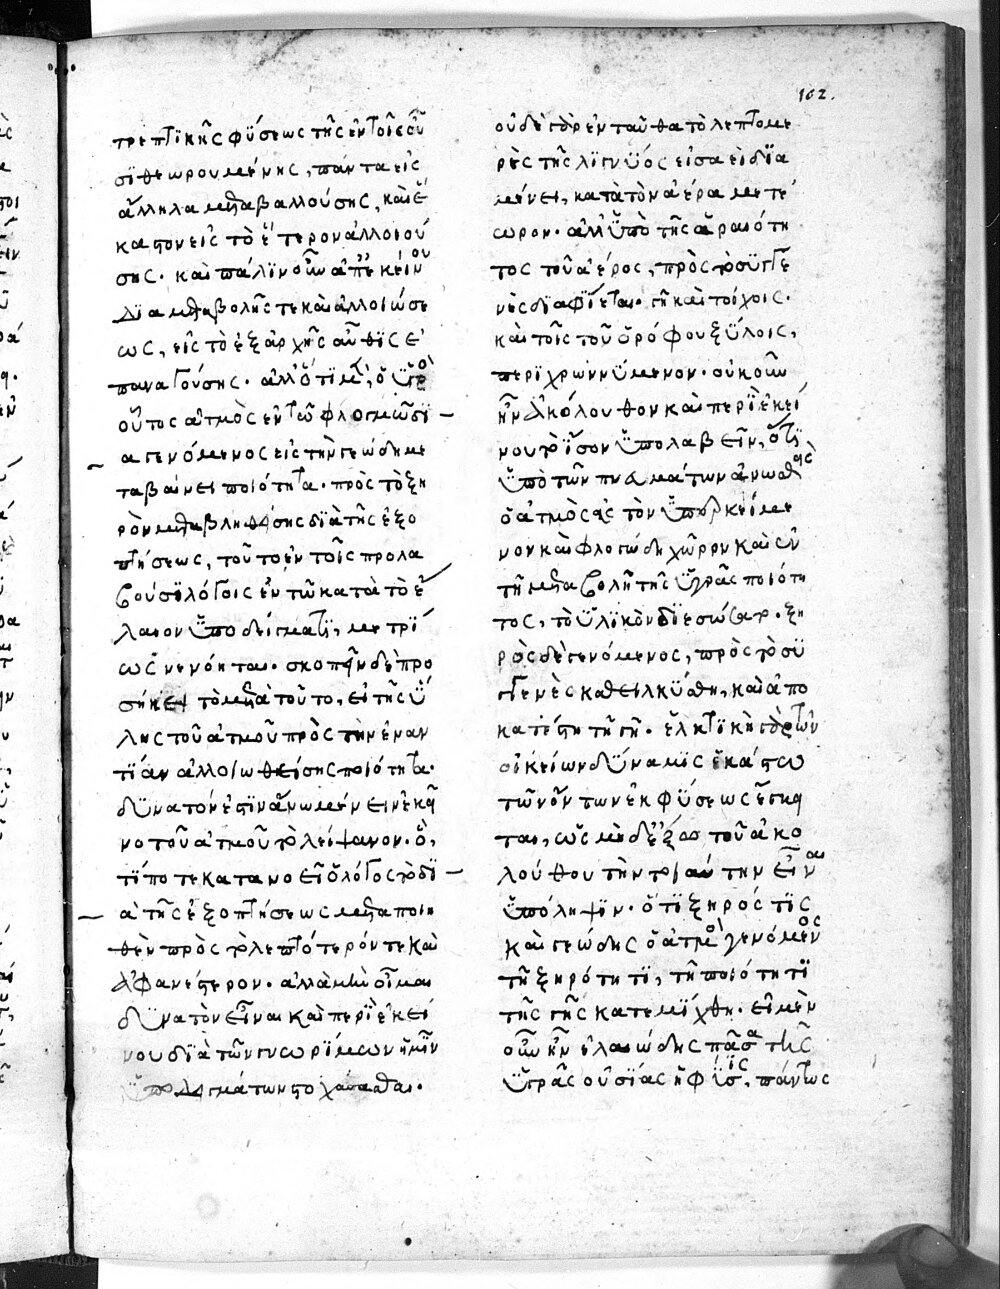 162.
τρεπτϊκῆς φύσεως τῆς ἐν τοῖς οὖ
σϊ θεωρουμένης, πάντα εἰς
ἄλληλα μεταβαλλούσης, καὶ ἕ
καστον εἰς τὸ ἕτερον ἀλλοιού
σης· καὶ πάλϊν οὖν ἀπ' ἐκείνου
διὰ μεταβολῆς τε καὶ ἀλλοιώσε
ως, εἰς τὸ ἐξαρχῆς αὖθϊς ἐ
παναγούσης· ἀλλ' ὅτϊ μὲν ὁ ὑγρὸς
οὗτος ἀτμὸς ἐν τῶ φλογμῶ δϊ
αγενόμενος εἰς τὴν γεώδη με
ταβαίνει ποιότητα· πρὸς τὸ ξη
ρὸν μεταβληθείσης διὰ τῆς ἐξο
πτήσεως, τοῦτο ἐν τοῖς προλα
βοῦσϊ λόγοις ἐν τῶ κατὰ τὸ ἔ
λαιον ὑποδείγματϊ, μετρί
ως νενόηται· σκοπεῖν δὲ προ
σήκει τὸ μετὰ τοῦτο, εἰ τῆς ὕ
λης τοῦ ἀτμοῦ πρὸς τὴν ἐναν
τίαν ἀλλοιωθείσης ποιότητα·
δυνατόν ἐστϊν ἄνω μένειν ἐκεῖ
νο τοῦ ἀτμοῦ τὸ λείψανον· ὅ,
τί ποτε κατανοεῖ ὁ λόγος τὸ δϊ
ὰ τῆς ἐξοπτήσεως μεταποιη
θὲν πρὸς τὸ λεπτότερόν τε καὶ
ἀφανέστερον· ἀλλὰ μὴν οἶμαι
δυνατὸν εἶναι καὶ περὶ ἐκεί
νου διὰ τῶν γνωρίμων ἡμῖν
ὑποδειγμάτων στοχάσασθαι·
οὐδὲ γὰρ ἐνταῦθα τὸ λεπτομε
ρὲς τῆς λϊγνύος εἰσαεὶ δϊα
μένει, κατὰ τὸν ἀέρα μετέ
ωρον· ἀλλ' ὑπὸ τῆς ἀραιότη
τος τοῦ ἀέρος, πρὸς τὸ συγγε
νὲς δϊαφίεται· γῆ καὶ τοίχοις·
καὶ τοῖς τοῦ ὀρόφου ξύλοις,
περϊχρωννύμενον· οὐκοῦν
ἦν ἀκόλουθον καὶ περὶ ἐκεί
νου τὸ ἶσον ὑπολαβεῖν, ὅτϊ
ὑπὸ τῶν πνευμάτων ἀνωσθεὶς
ὁ ἀτμὸς εἰς τὸν ὑπερκείμε
νον καὶ φλογώδη χῶρον καὶ ἐν
τῆ μεταβολῆ τῆς ὑγρᾶς ποιότη
τος, τὸ ὑλϊκὸν διεσώσατο· ξη
ρὸς δὲ γενόμενος, πρὸς τὸ συ
γγενὲς καθειλκύσθη, καὶ ἀπο
κατέστη τῆ γῆ· ἑλκτϊκὴ γὰρ τῶν
οἰκείων δύναμϊς ἑκάστω
τῶν ὄντων ἐκ φύσεως ἔγκει
ται, ὡς μὴ δ' ἔξω τοῦ ἀκο
λούθου τὴν τοιαύτην εἶναι
ὑπόληψϊν· ὅτϊ ξηρός τϊς
καὶ γεώδης ὁ ἀτμὸς γενόμενος
τῆ ξηρότητϊ, τῆ ποιότητϊ
τῆς γῆς κατεμίχθη· εἰ μὲν
οὖν ἦν ἐλαιώδης πᾶσα τῆς
ὑγρᾶς οὐσίας ἡ φύσϊς, πάντως